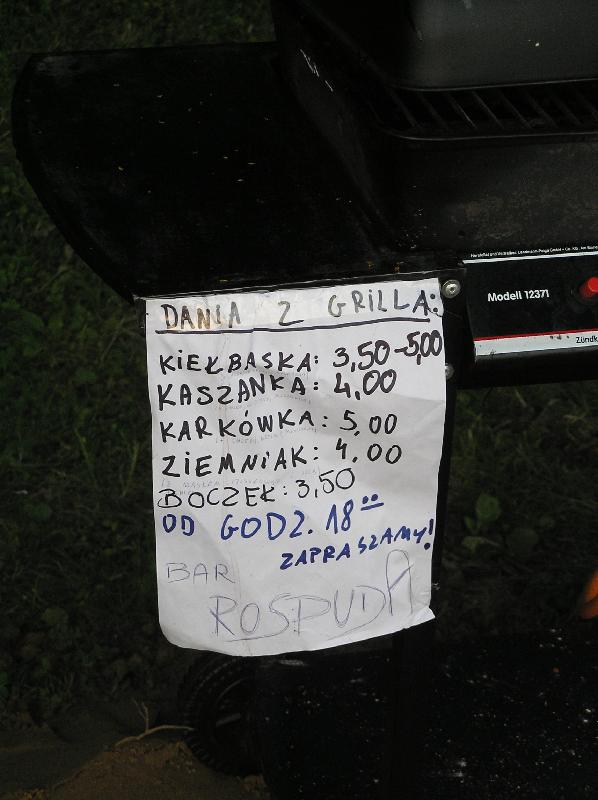 DANIA Z GRILLA:
KIEŁBASKA: 3,50-5,00
KASZANKA: 4,00
KARKÓWKA: 5,00
ZIEMNIAK: 4.00
BOCZEK: 3,50
OD GODZ. 18⁰⁰
ZAPRASZAMY!
BAR
ROSPUDA
Modell 12371